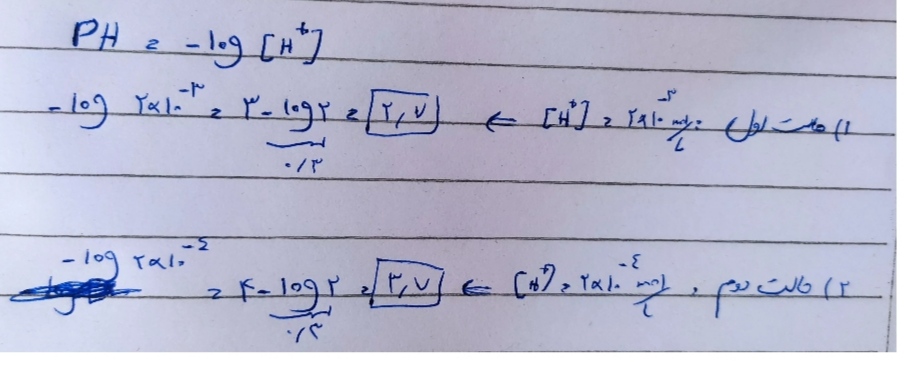 PH = -log [H⁺]
۱) حالت اول [H⁺] = ۲×۱۰⁻³ mol/L ← -log ۲×۱۰⁻³ = ۳-log۲ = ۲,۷
۰/۳
۲) حالت دوم، [H⁺] = ۲×۱۰⁻⁴ mol/L ← -log ۲×۱۰⁻⁴ = ۴-log۲ = ۳,۷
۰/۳